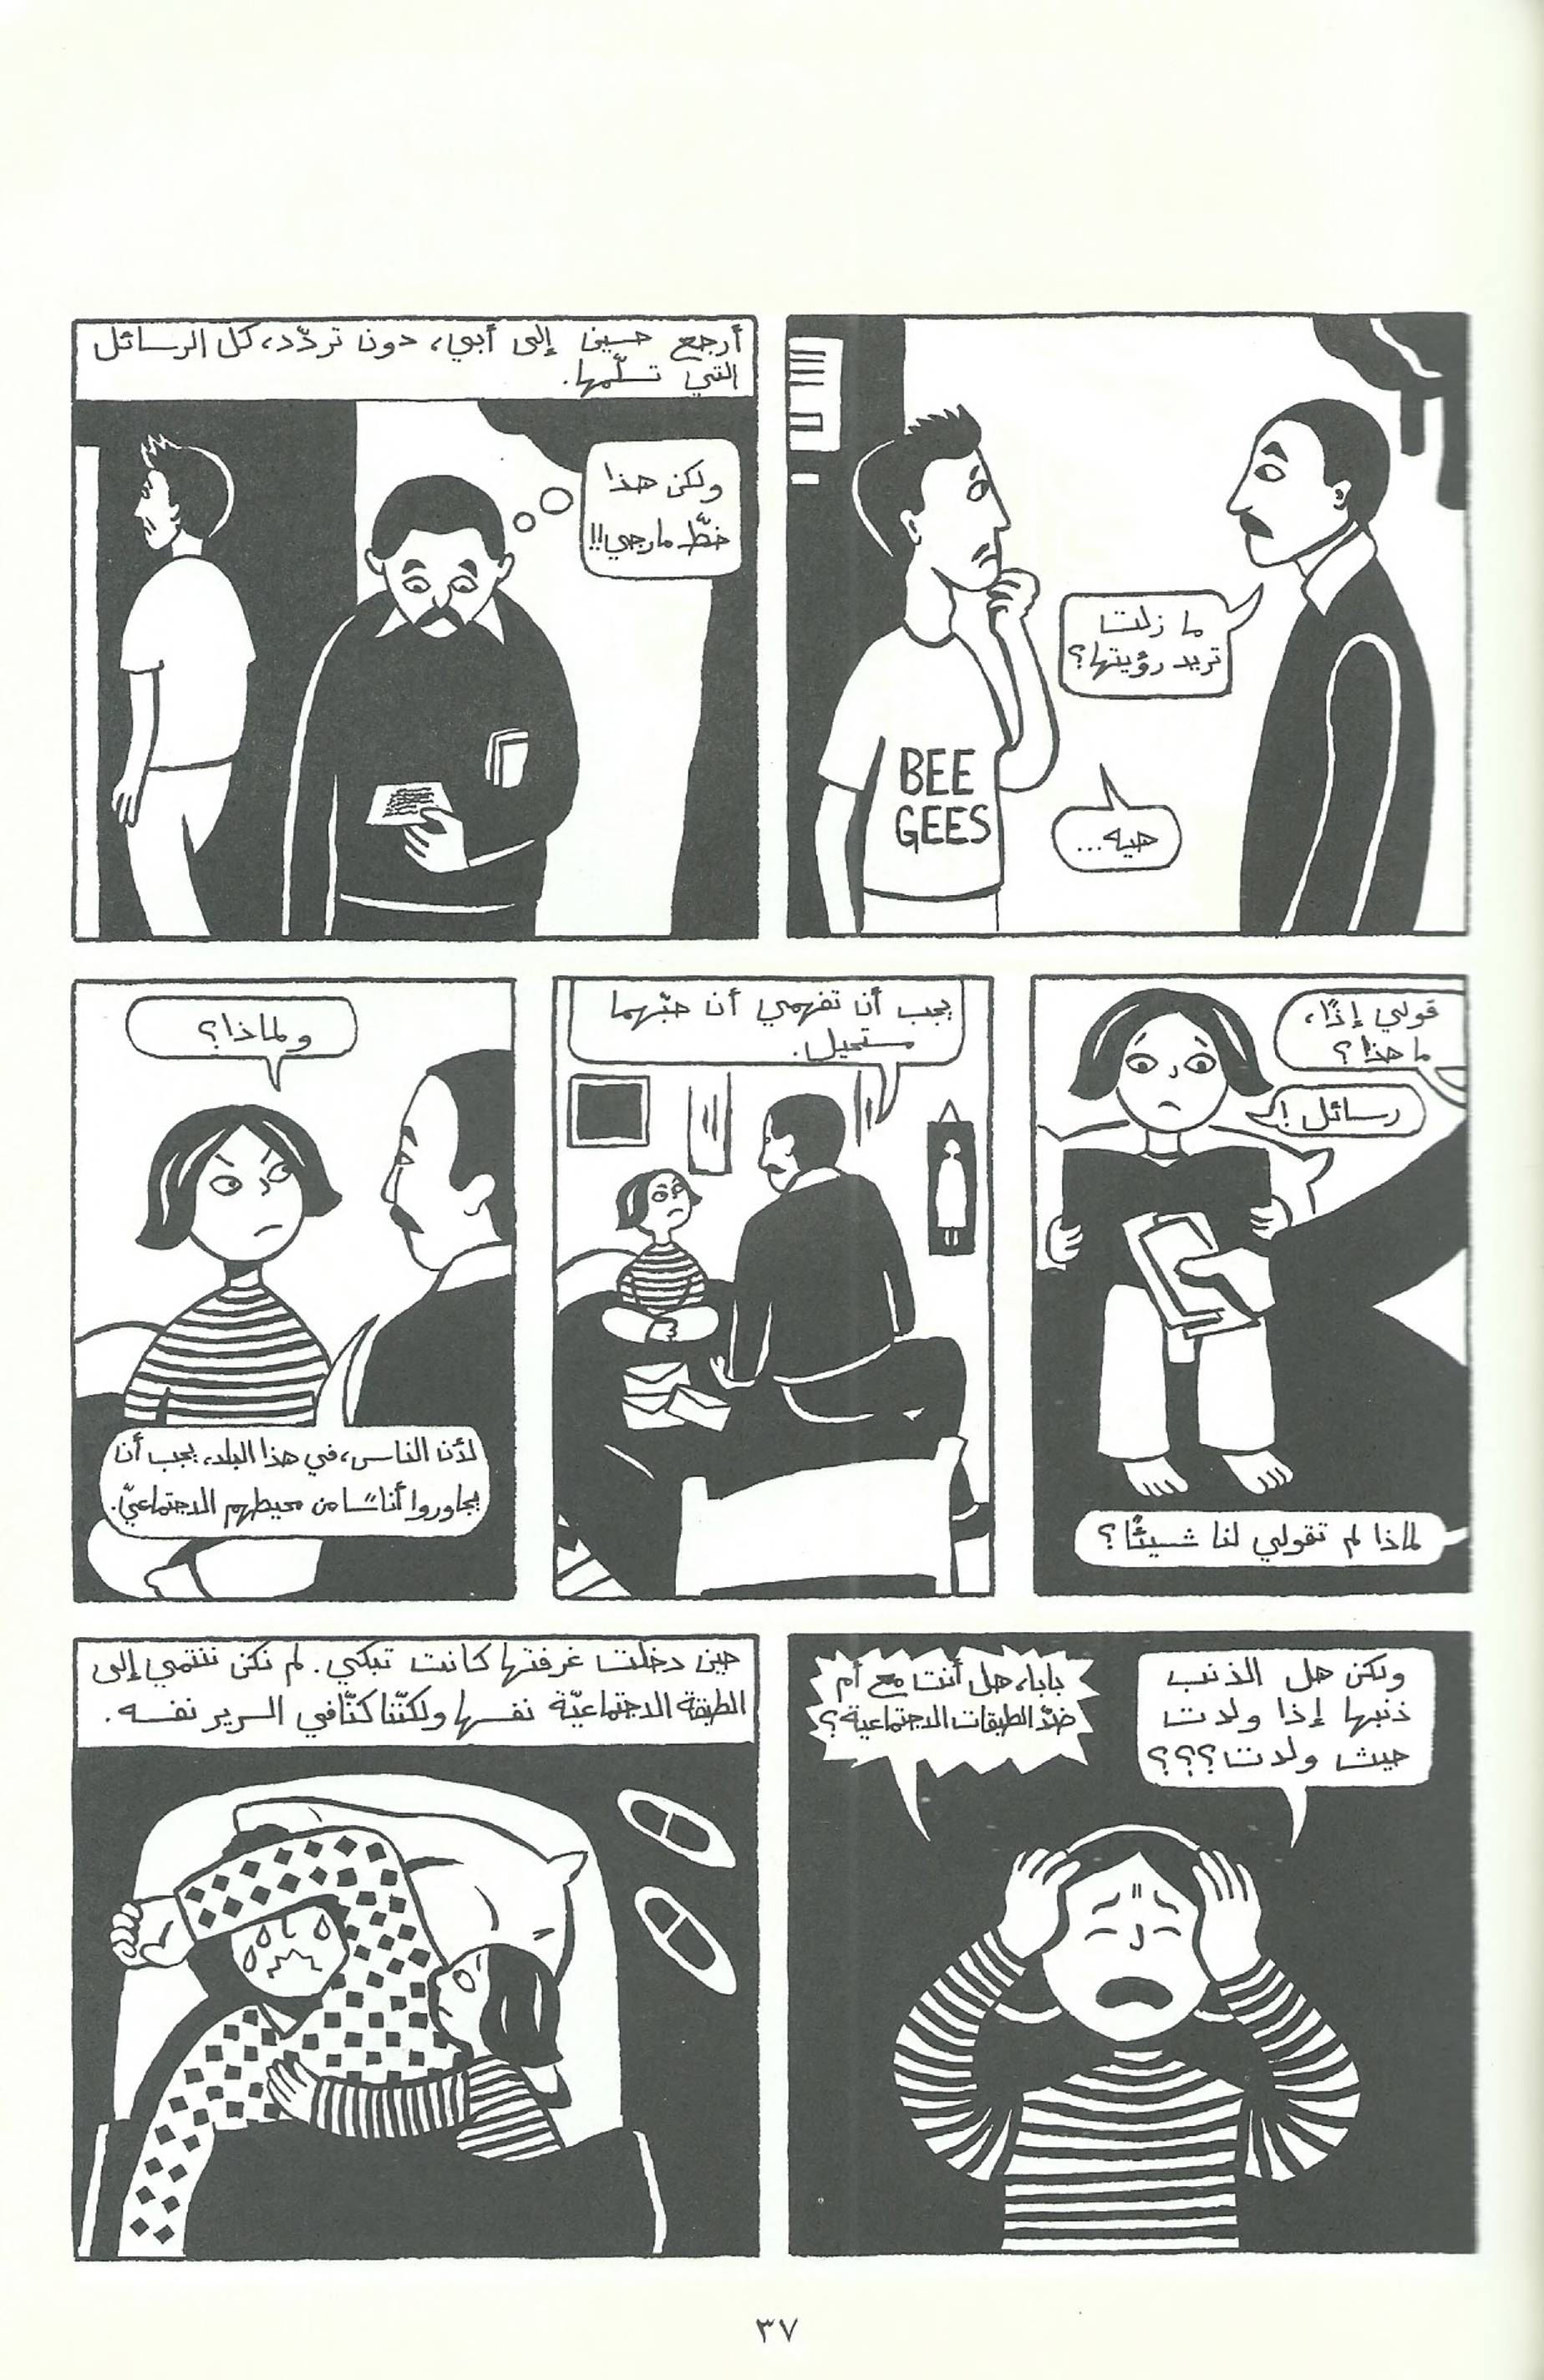 ما زلت
تريد رؤيتها؟
BEE
GEES
هيه...
أرجع حسين إلى أبي، دون تردّد، كل الرسائل
التي تسلّمها.
ولكن هذا
خطّ مارجي!!
قولي إذًا،
ما هذا؟
رسائل!
لماذا لم تقولي لنا شيئًا؟
يجب أن تفهمي أن حبّهما
مستحيل.
ولماذا؟
لأن الناس، في هذا البلد، يجب أن
يجاوروا أناسًا من محيطهم الاجتماعيّ.
ولكن هل الذنب
ذنبها إذا ولدت
حيث ولدت؟؟؟
بابا، هل أنت مع أم
ضدّ الطبقات الاجتماعية؟
حين دخلت غرفتها كانت تبكي. لم نكن ننتمي إلى
الطبقة الاجتماعيّة نفسها ولكنّنا كنّا في السرير نفسه.
٣٧